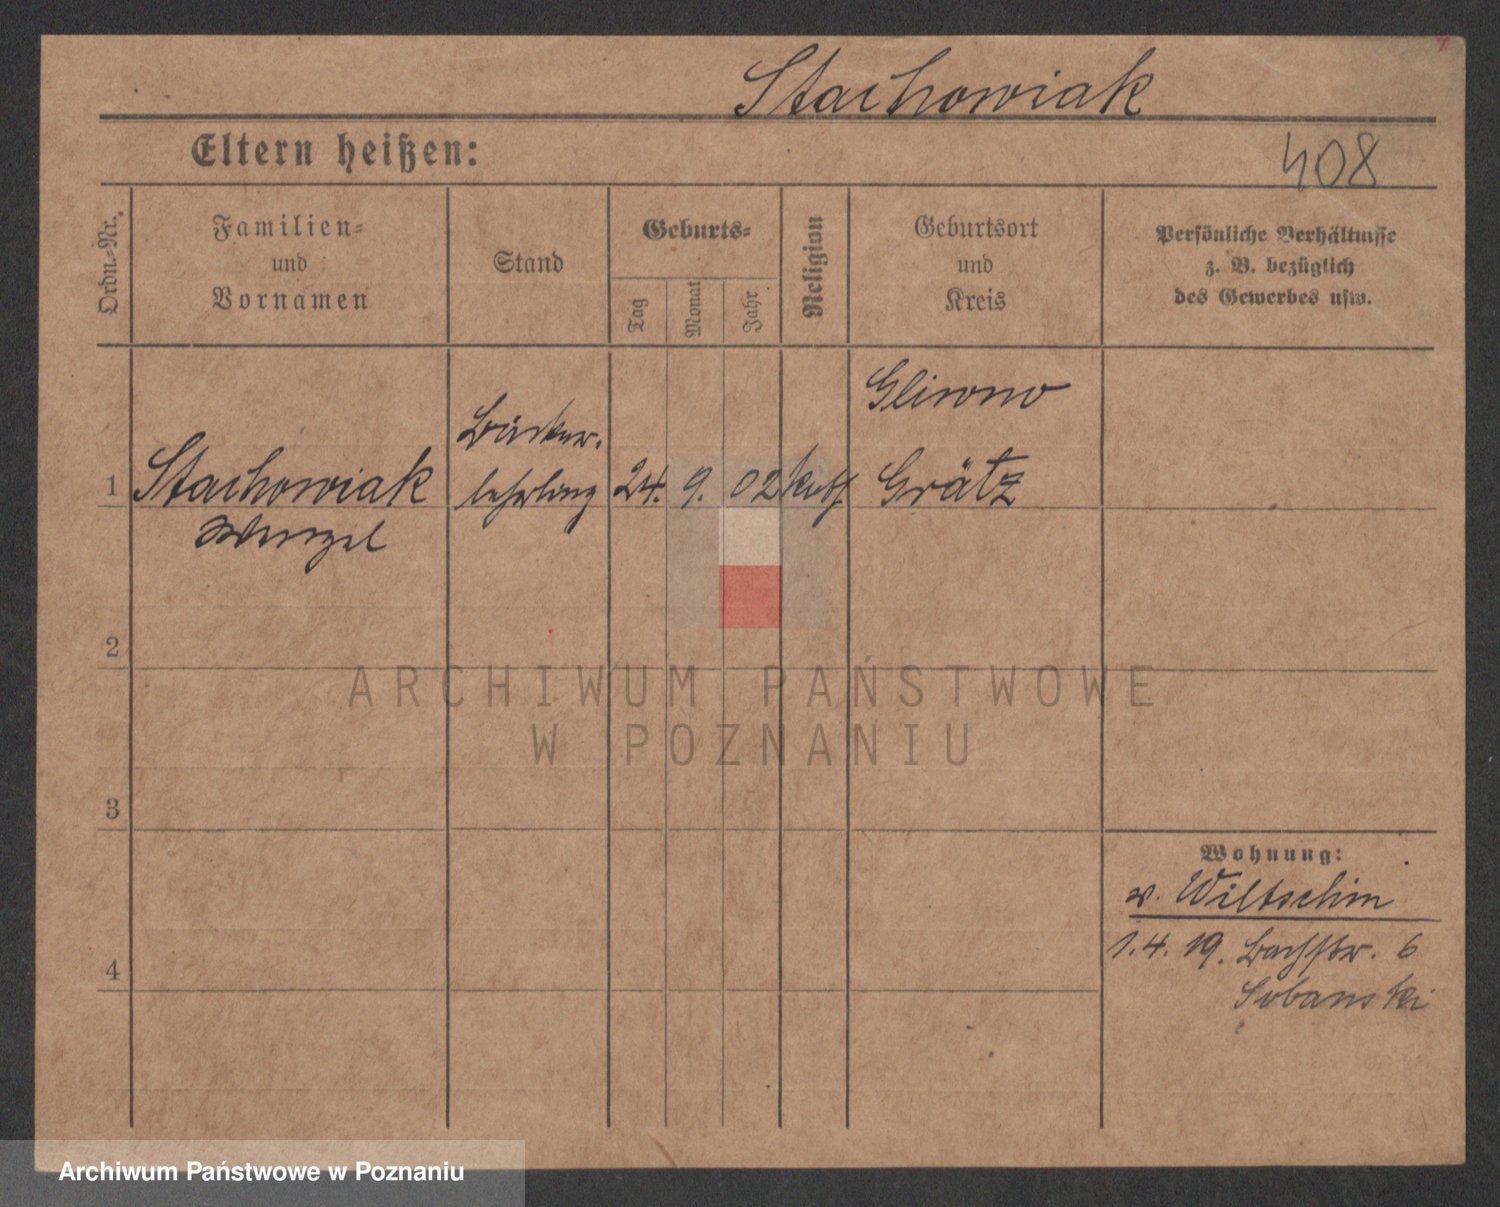 Stachowiak
Eltern heißen:
408
Ordn.-Nr.
Familien-
und
Vornamen
Stand
Geburts-
Tag
Monat
Jahr
Religion
Geburtsort
und
Kreis
Persönliche Verhältnisse
z. B. bezüglich
des Gewerbes usw.
Gliwno
Bäcker-
1 Stachowiak lehrling 24. 9. 02 kath. Grätz
Wenzel
2
3
Wohnung:
v. Wiltschin
1.4.19. Bachstr. 6
Sobanski
4
ARCHIWUM PAŃSTWOWE
W POZNANIU
Archiwum Państwowe w Poznaniu